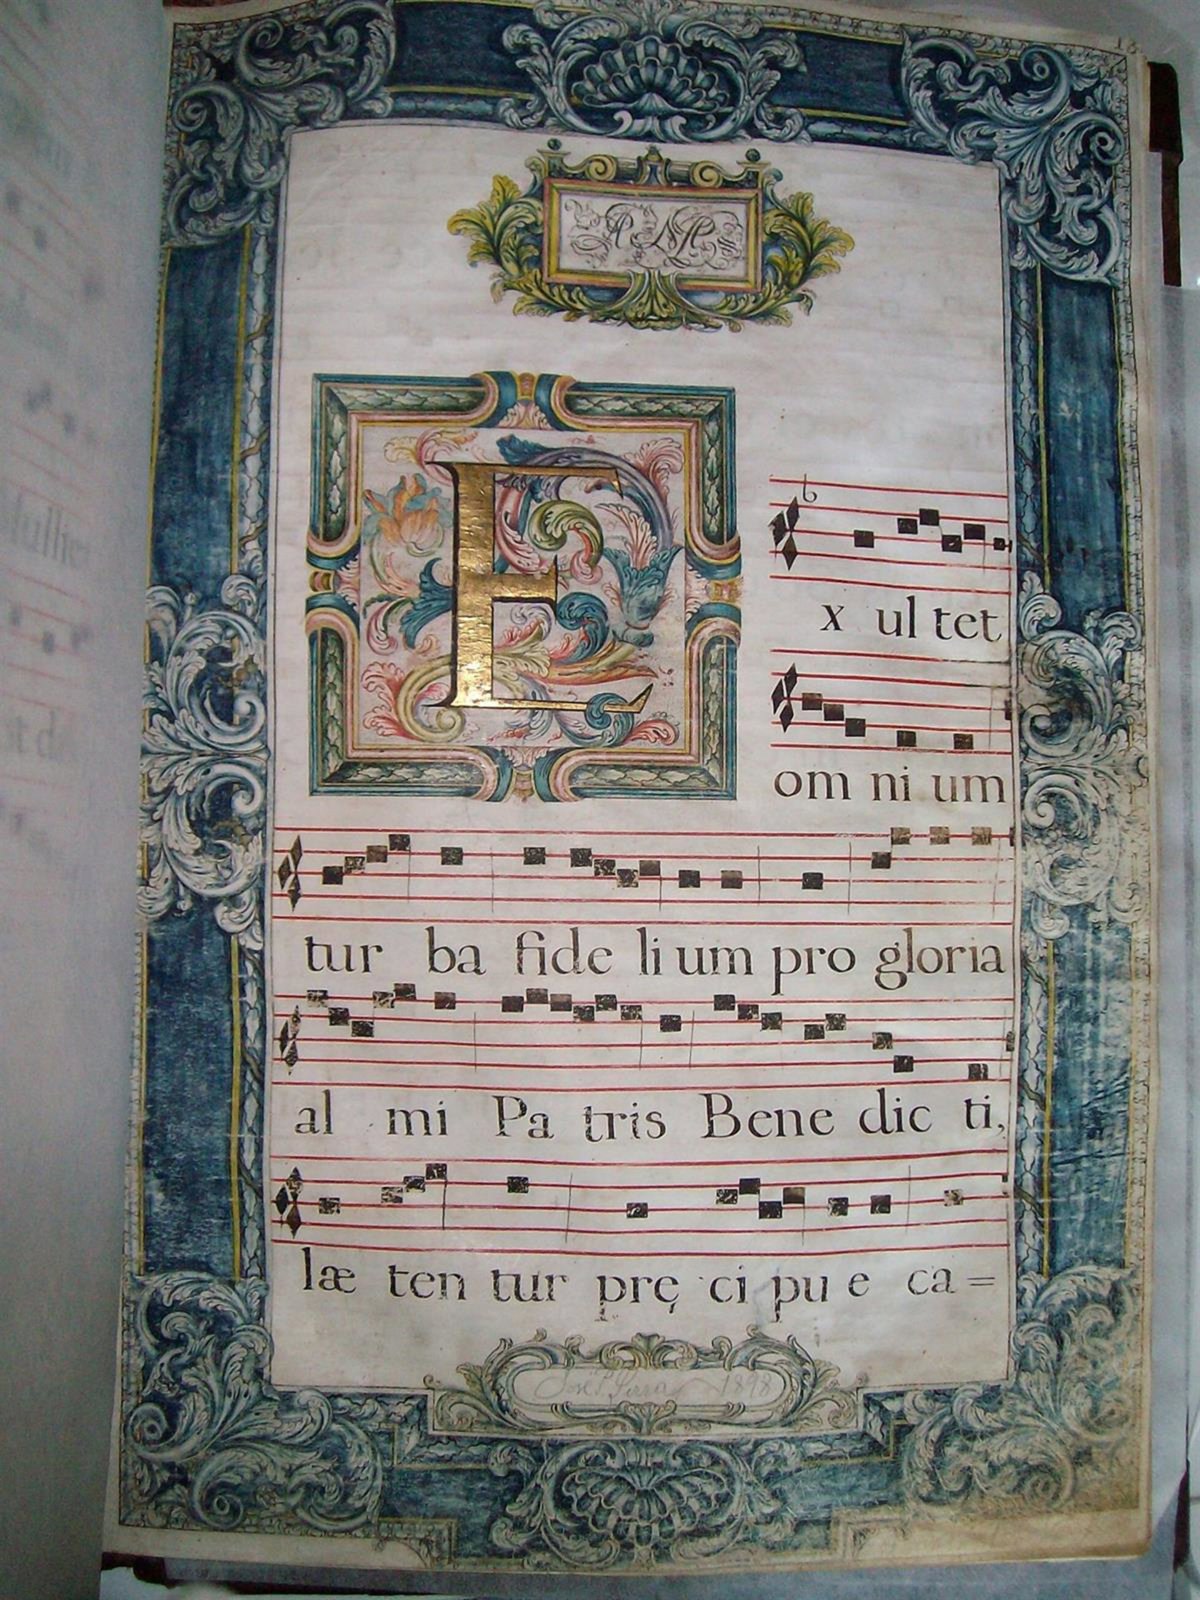 E x ul tet
om ni um
tur ba fide li um pro gloria
al mi Pa tris Bene dic ti,
læ ten tur prę ci pu e ca=
José P. Serra 1898